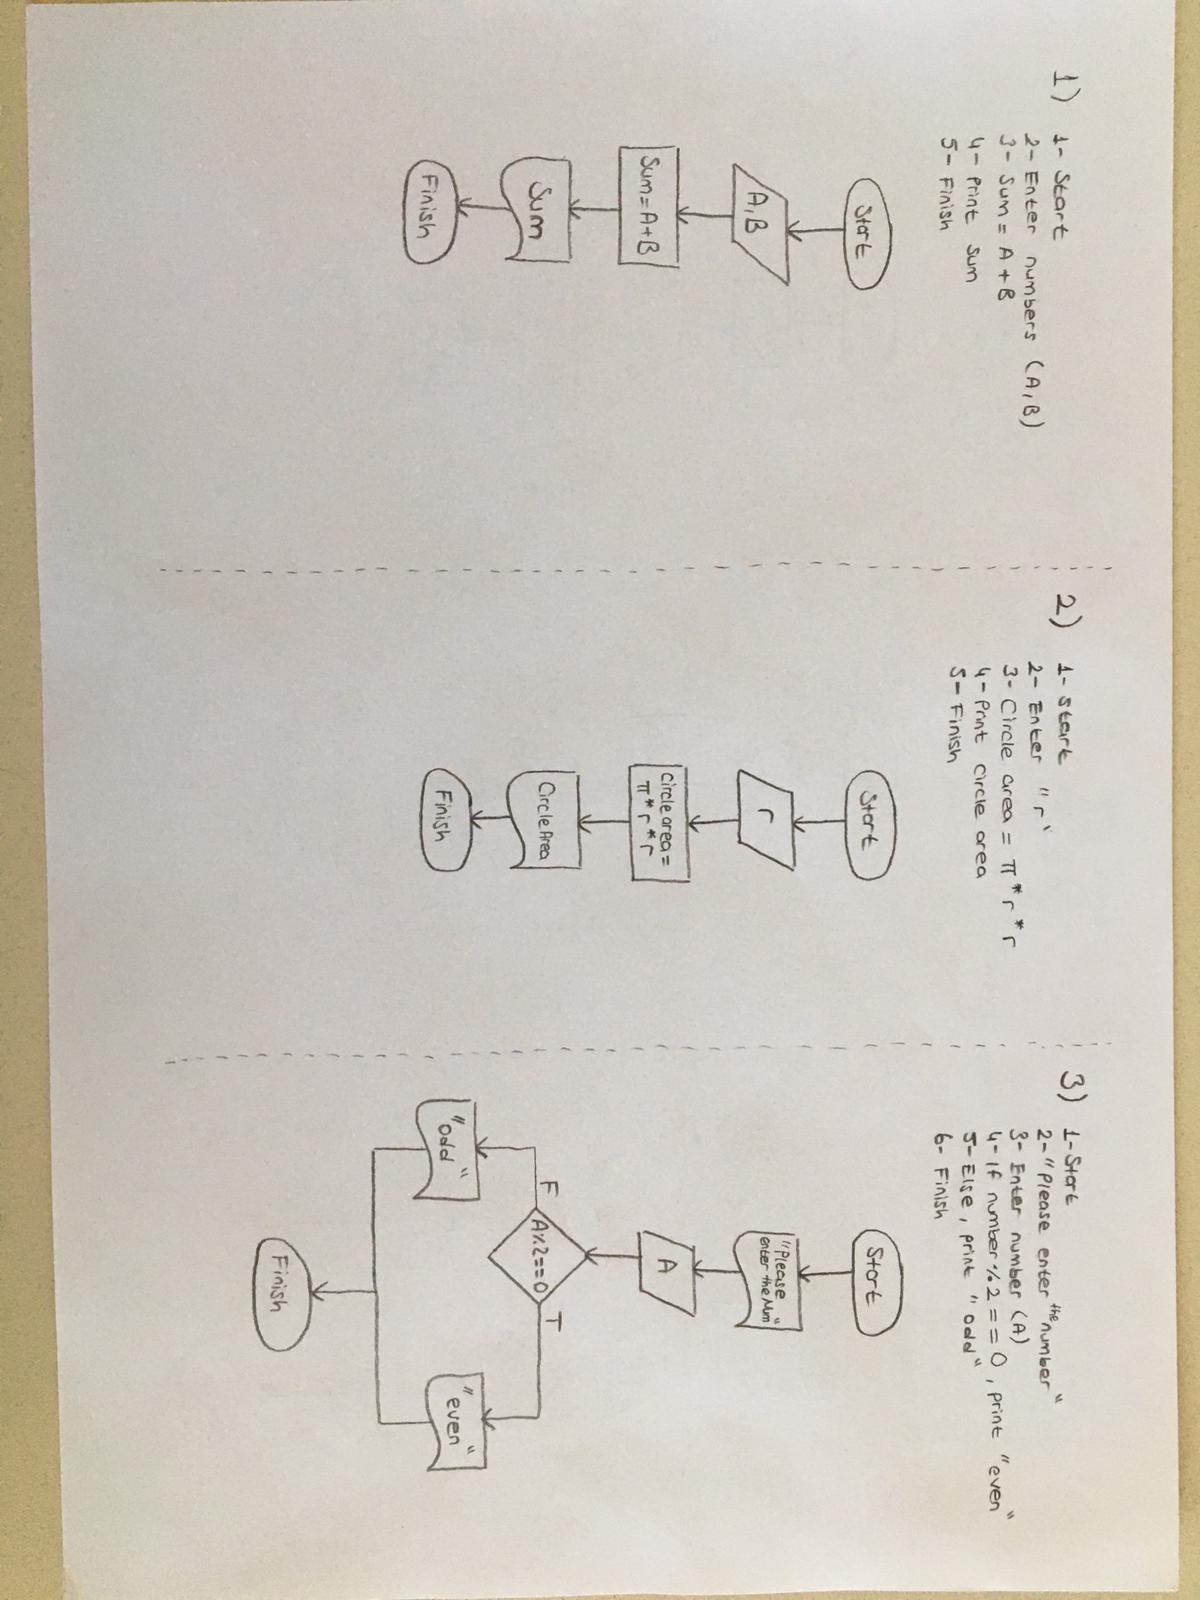 1)
1- Start
2- Enter numbers (A,B)
3- Sum = A + B
4- Print sum
5- Finish
Start
A,B
Sum=A+B
Sum
Finish
2)
1- start
2- Enter "r"
3- Circle area = π*r*r
4- Print circle area
5- Finish
Start
r
Circle area =
π*r*r
Circle Area
Finish
3)
1- Start
2- "Please enter the number"
3- Enter number (A)
4- If number % 2 == 0, print "even"
5- Else, print "odd"
6- Finish
Start
"Please
enter the Num"
A
F
A%2==0
T
"odd"
"even"
Finish